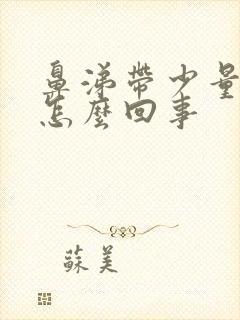 鼻涕帶少量
怎麼回事
蘇美